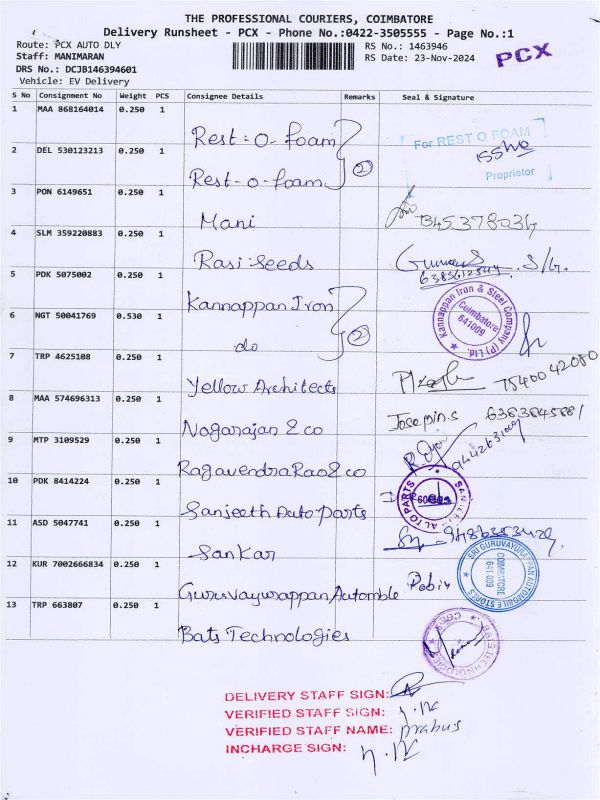 THE PROFESSIONAL COURIERS, COIMBATORE
Delivery Runsheet - PCX - Phone No.:0422-3505555 - Page No.:1
Route: PCX AUTO DLY
Staff: MANIMARAN
DRS No.: DCJB146394601
Vehicle: EV Delivery
RS No.: 1463946
RS Date: 23-Nov-2024
PCX
S No Consignment No Weight PCS Consignee Details Remarks Seal & Signature
1 MAA 868164014 0.250 1 Rest-O-foam
For REST O FOAM
Proprietor
2 DEL 530123213 0.250 1 Rest-O-foam 2
3 PON 6149651 0.250 1 Mani
4 SLM 359220883 0.250 1 Rasi Seeds
5 PDK 5075002 0.250 1 Kannappan Iron
Kannappan Iron & Steel Company (P) Ltd.
Coimbatore
641009
6 NGT 50041769 0.530 1 do 2
7 TRP 4625108 0.250 1 Yellow Architects 7540042080
8 MAA 574696313 0.250 1 Nagarajan & co Josepin.s
9 MTP 3109529 0.250 1 RagavendraRao & co
10 PDK 8414224 0.250 1 Sanjeeth Auto parts
11 ASD 5047741 0.250 1 Sankar
12 KUR 7002666834 0.250 1 Guruvayurappan Automble
SRI GURUVAYURAPPAN AUTOMOBILE STORES
COIMBATORE
641 009
13 TRP 663807 0.250 1 Bats Technologies
BATS TECHNOLOGIES
DELIVERY STAFF SIGN:
VERIFIED STAFF SIGN:
VERIFIED STAFF NAME: prabus
INCHARGE SIGN: